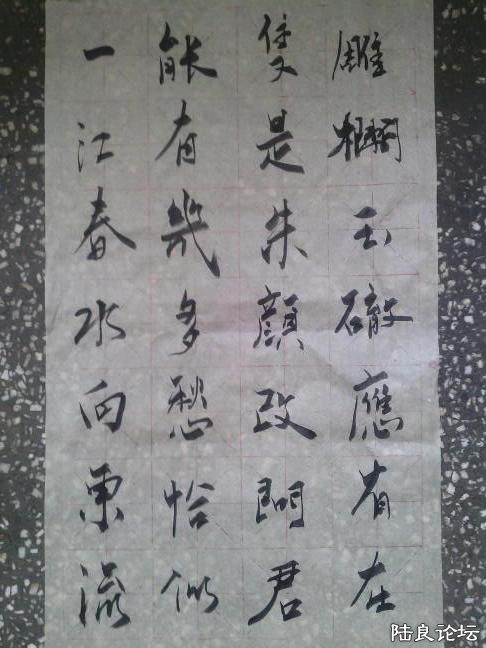 雕欄玉應有在
隻是朱顏改問君
能有幾多愁恰似
一江春水向東流
陆良论坛